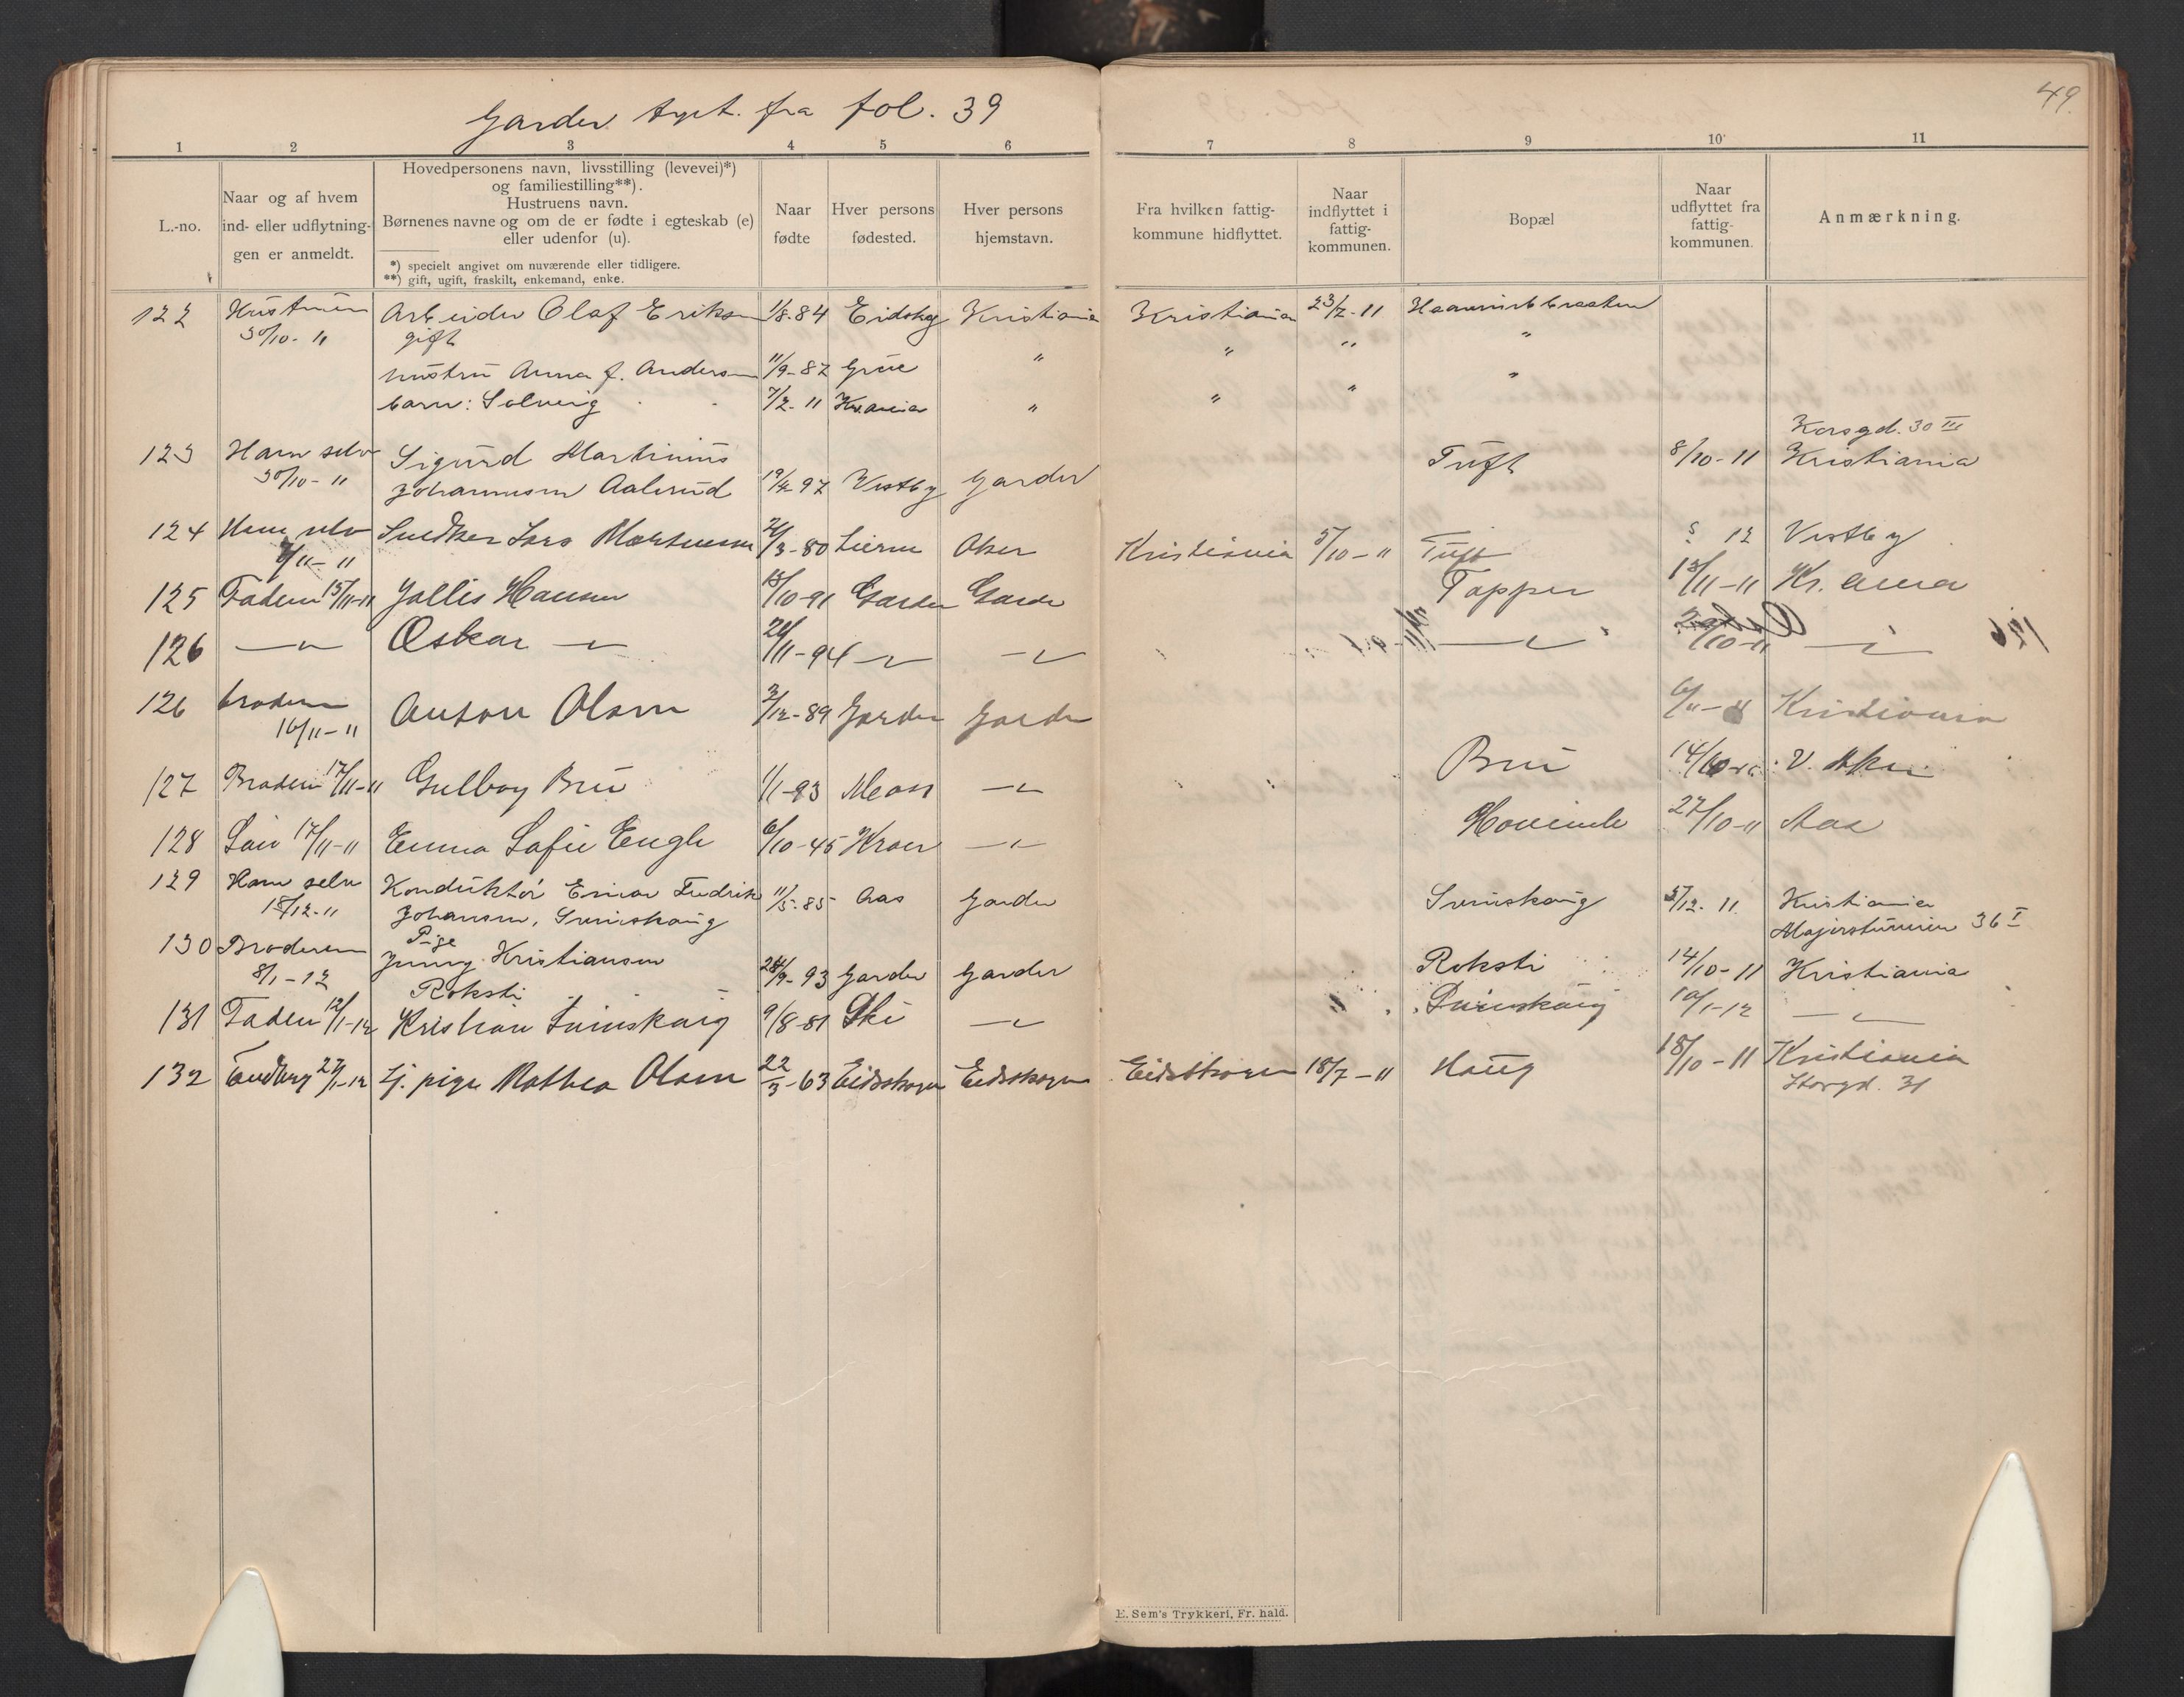 Garder frst. fra fol. 39
49.
1 2 3 4 5 6 7 8 9 10 11
L.-no.
Naar og af hvem
ind- eller udflytnin-
gen er anmeldt.
Hovedpersonens navn, livsstilling (levevei)*)
og familiestilling**).
Hustruens navn.
Børnenes navne og om de er fødte i egteskab (e)
eller udenfor (u).
*) specielt angivet om nuværende eller tidligere.
**) gift, ugift, fraskilt, enkemand, enke.
Naar
fødte
Hver persons
fødested.
Hver persons
hjemstavn.
Fra hvilken fattig-
kommune hidflyttet.
Naar
indflyttet i
fattig-
kommunen.
Bopæl
Naar
udflyttet fra
fattig-
kommunen.
Anmærkning.
122 Hustruen Arbeider Olaf Eriksen 1/8-84 Eidskog Kristiania Kristiania 23/2-11
30/10-11 gift " " "
hustru Anna f. Andersen 11/9-82 Grue " "
barn: Solveig 7/2-11 Kr.ania " " "
Korsgd. 30 III
123 Ham selv Sigurd Martinius Tuft 8/10-11 Kristiania
30/10-11 Johannesen Aalerud 19/4 97 Vestby Garder
124 Ham selv Snedker Lars Mortensen 21/3-80 Lierne Aker Kristiania 5/10-11 Tuft 5 12 Vestby
7/11-11
125 Faderen 15/11-11 Jallis Hansen 18/10-91 Garder Garder Tapper 13/11-11 Kr.ania
126 —"— Oskar —"— 26/11-94 —"— —"— —"— 29/10-11 —"—
126 broderen Anton Olsen 3/12-89 Garder Garder 6/11-11 Kristiania
16/11-11
127 Broderen 17/11-11 Gulborg Bru 1/1-93 Moss —"— Bru 14/10-11 V. Aker
128 17/11-11 Emma Sofie Engh 6/10-45 Kroer —"— 27/10-11 Aas
129 Ham selv Konduktør Einar Fredrik 11/5-85 Aas Garder Sreinskaug 5/12-11 Kristiania
18/12-11 Johansen, Sreinskaug Majorstuveien 36 I
130 Broderen Pige
8/1-12 Jenny Kristiansen 24/9-93 Garder Garder Roksti 14/10-11 Kristiania
Roksti
131 Faderen 12/1-12 Kristian Sreinskaug 9/8-81 Ski —"— Sreinskaug 10/1-12 —"—
132 27/1-12 Tj. pige Mathea Olsen 22/3-63 Eidsskogen Eidsskogen Eidsskogen 18/7-11 Haug 18/10-11 Kristiania
Storgd. 31
E. Sem's Trykkeri, Fr. hald.